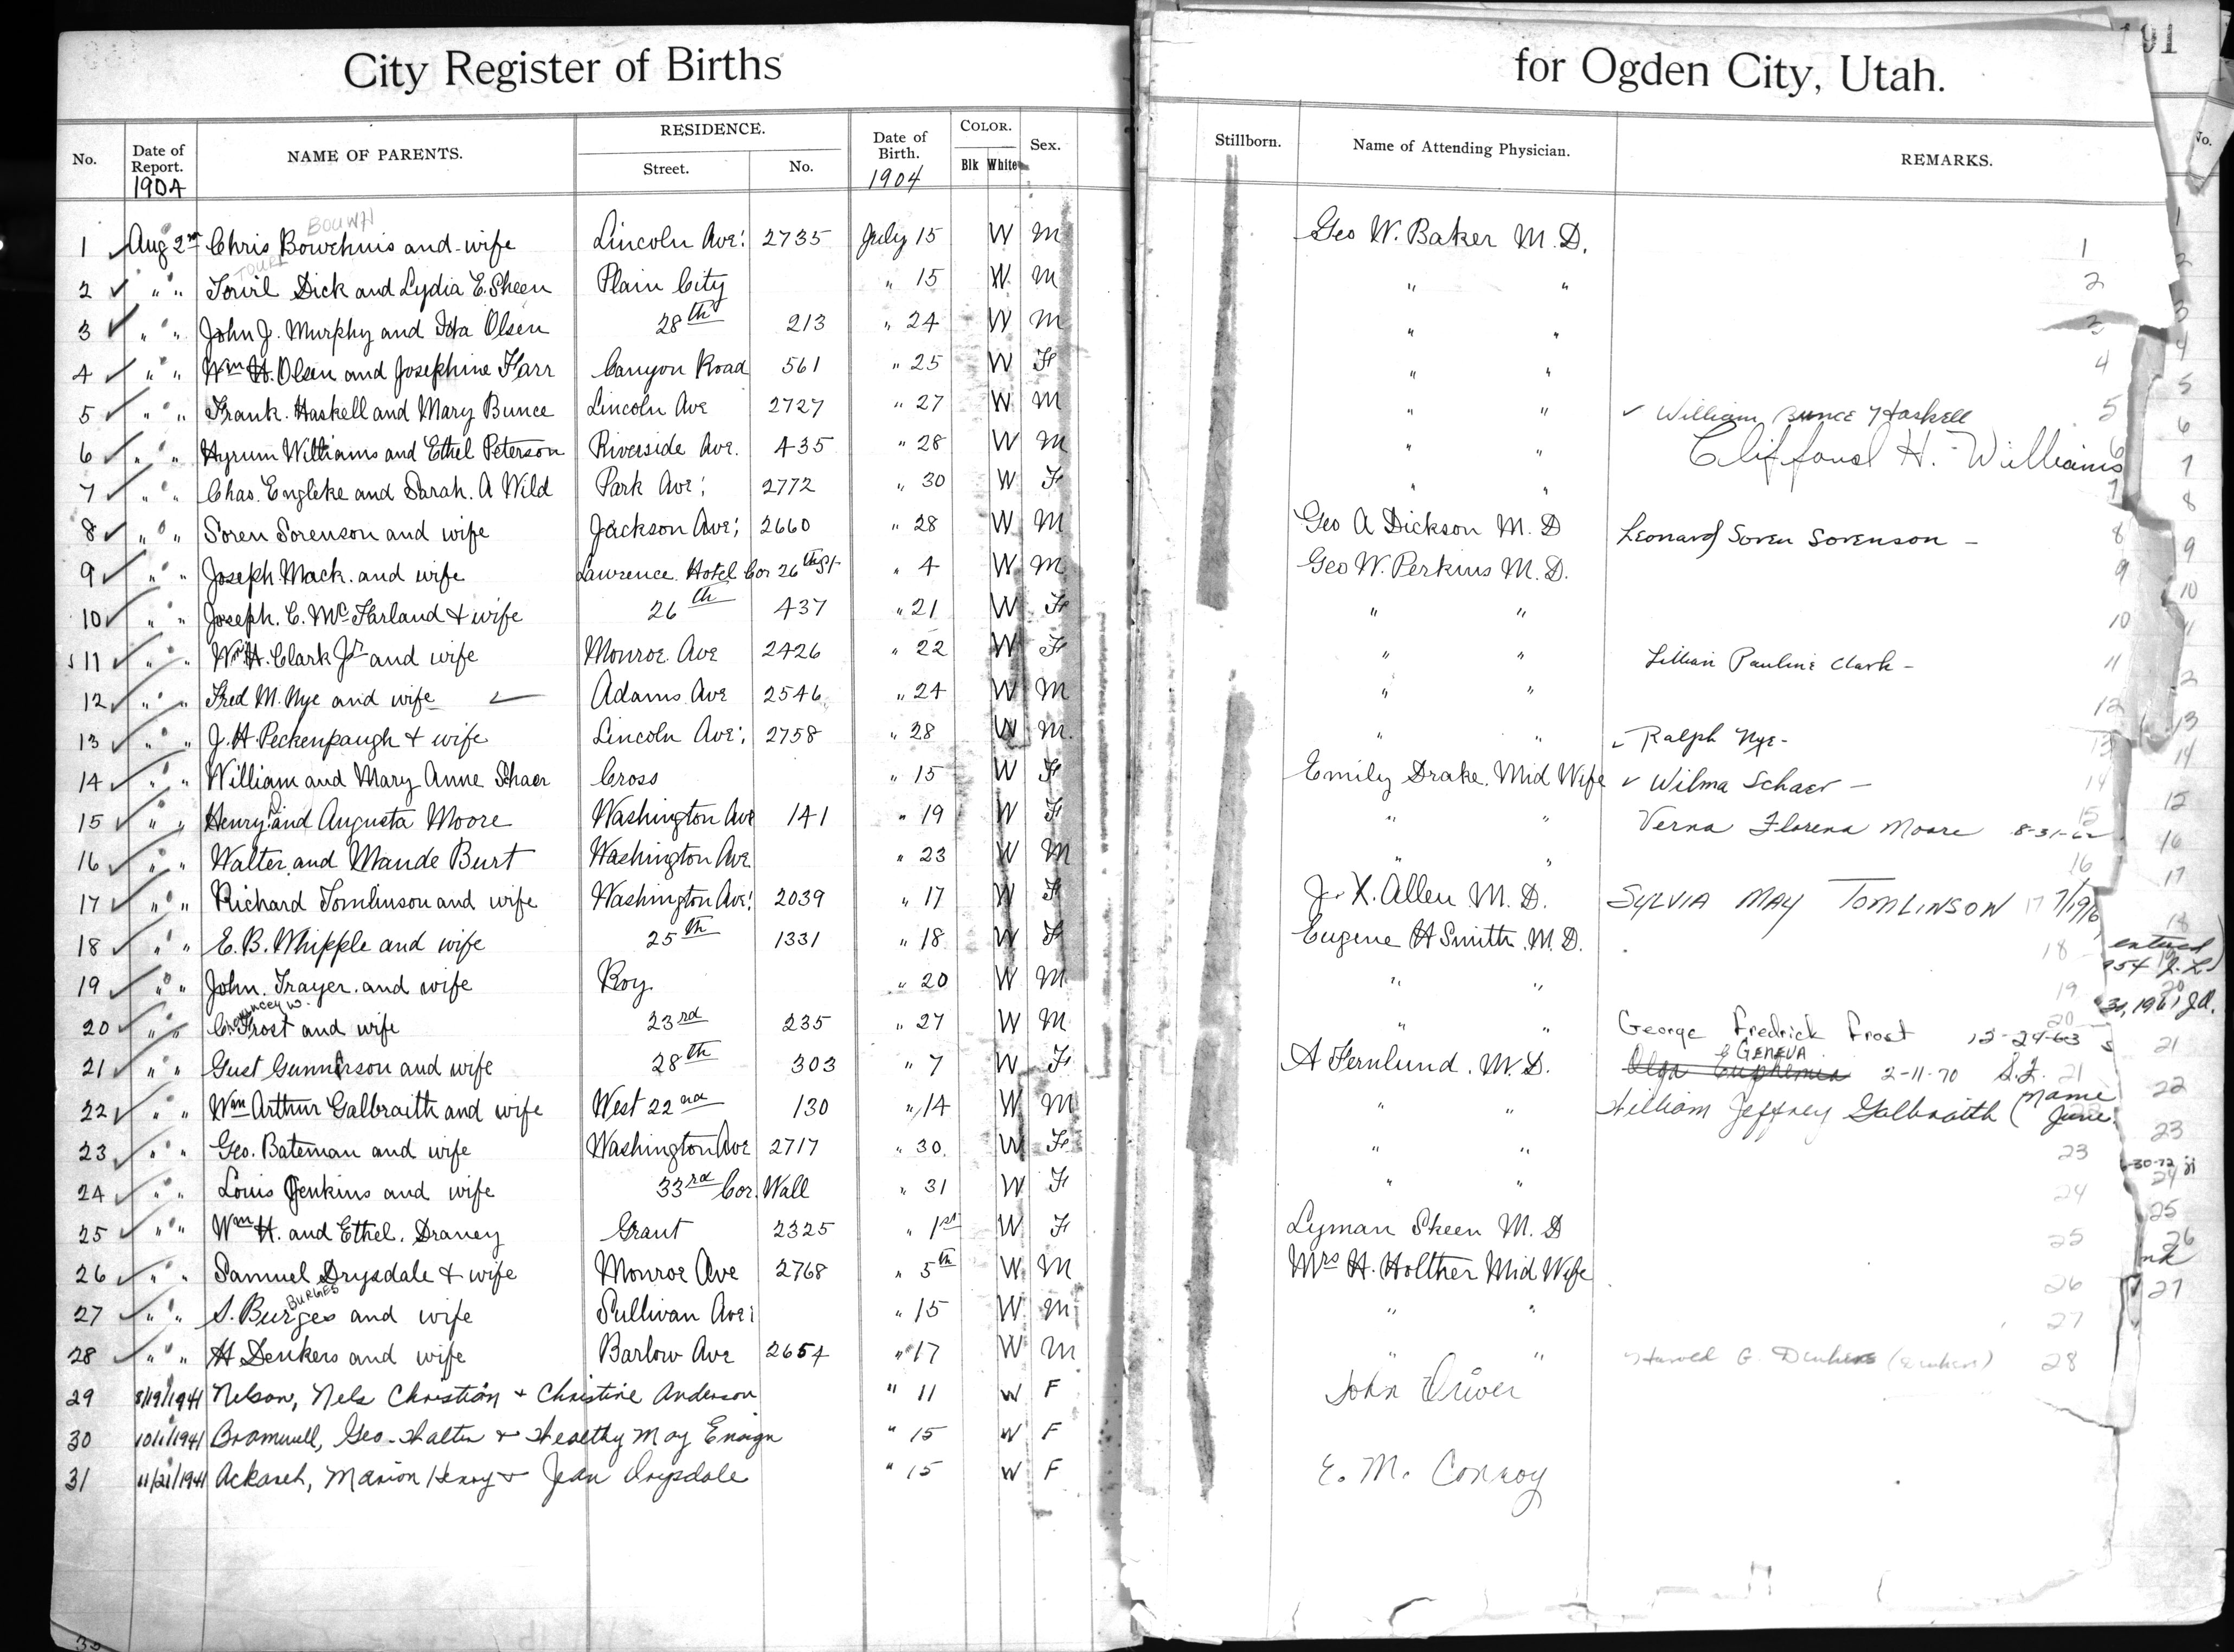 City Register of Births for Ogden City, Utah.
191
No. Date of Report. NAME OF PARENTS. RESIDENCE. Street. No. Date of Birth. COLOR. Blk White Sex. Stillborn. Name of Attending Physician. REMARKS. No.
1904 1904
BOUWH
1 Aug 2nd Chris Bowchuis and wife Lincoln Ave: 2735 July 15 W M Geo W. Baker M.D. 1
2 " " Dick and Lydia E. Skeen Plain City " 15 W M " " 2
3 " " John J. Murphy and Ida Olsen 28th 213 " 24 W M " " 3
4 " " Wm H. Olsen and Josephine Farr Canyon Road 561 " 25 W F " " 4
5 " " Frank. Haskell and Mary Bunce Lincoln Ave 2727 " 27 W M " " William Bunce Haskell 5
6 " " Hyrum Williams and Ethel Peterson Riverside Ave. 435 " 28 W M " " Clifford H. Williams 6
7 " " Chas. Engleke and Sarah. A Wild Park Ave: 2772 " 30 W F " " 7
8 " " Soren Sorenson and wife Jackson Ave: 2660 " 28 W M Geo A Dickson M.D Leonard Soren Sorenson - 8
9 " " Joseph Mack. and wife Lawrence Hotel Cor 26th St " 4 W M Geo W. Perkins M.D. 9
10 " " Joseph. C. McFarland & wife 26th 437 " 21 W F " " 10
11 " " Wm H. Clark Jr and wife Monroe Ave 2426 " 22 W F " " Lillian Pauline Clark - 11
12 " " Fred M. Nye and wife Adams Ave 2546 " 24 W M " " 12
13 " " J. H. Peckenpaugh & wife Lincoln Ave: 2758 " 28 W M. " " Ralph Nye - 13
14 " " William and Mary Anne Shaer Cross " 15 W F Emily Drake. Mid Wife Wilma Schaer - 14
15 " " Henry and Augusta Moore Washington Ave 141 " 19 W F " " Verna Florena Moore 8-31-62 15
16 " " Walter and Maude Burt Washington Ave. " 23 W M " " 16
17 " " Richard Tomlinson and wife Washington Ave: 2039 " 17 W F J. X. Allen M.D. SYLVIA MAY TOMLINSON 17
18 " " E. B. Whipple and wife 25th 1331 " 18 W F Eugene H Smith. M.D. 18
entered
19 " " John. Trayer. and wife Roy. " 20 W M " " 19
Chauncey W.
20 " " C. Frost and wife 23rd 235 " 27 W M " " George Fredrick Frost 12-24-63 20
GENEVA
21 " " Gust Gunnerson and wife 28th 303 " 7 W F A Fernlund. M.D. Olga Euphemia 2-11-70 S.F. 21
22 " " Wm Arthur Galbraith and wife West 22nd 130 " 14 W M " " William Jeffrey Galbraith (name June
23 " " Geo. Bateman and wife Washington Ave 2717 " 30. W F " " 23
24 " " Louis Jenkins and wife 33rd Cor. Wall " 31 W F " " 24
25 " " Wm H. and Ethel. Draney Grant 2325 " 1st W F Lyman Skeen M.D 25
26 " " Samuel Drysdale & wife Monroe Ave 2768 " 5th W M Mrs H. Holther Mid Wife 26
BURGES
27 " " S. Burges and wife Sullivan Ave: " 15 W M " " 27
28 " " H Denkers and wife Barlow Ave 2654 " 17 W M " " Harold G. Denkers 28
29 8/19/1941 Nelson, Nels Christian & Christine Anderson " 11 W F John Driver
30 10/1/1941 Bramwell, Geo. Walter & Healthy May Ensign " 15 W F
31 11/21/1941 Ackaret, Marion Henry & Jean Drysdale " 15 W F E. M. Conroy